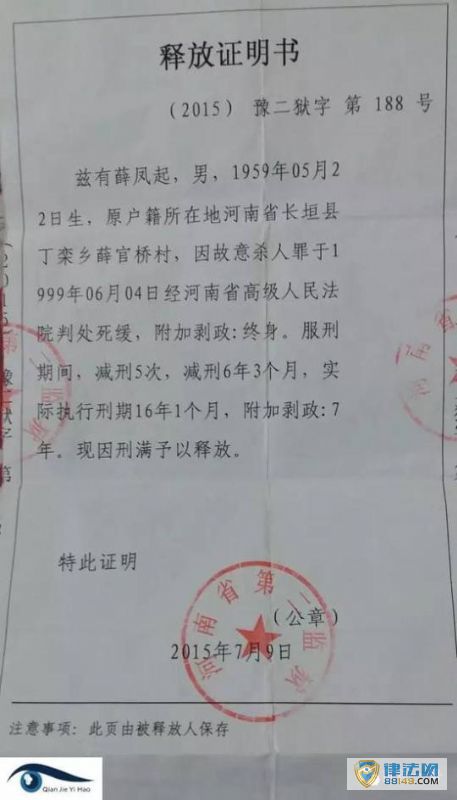 释放证明书
(2015) 豫二狱字 第 188 号
兹有薛凤起，男，1959年05月2
2日生，原户籍所在地河南省长垣县
丁栾乡薛官桥村，因故意杀人罪于1
999年06月04日经河南省高级人民法
院判处死缓，附加剥政:终身。服刑
期间，减刑5次，减刑6年3个月，实
际执行刑期16年1个月，附加剥政:7
年。现因刑满予以释放。
特此证明
河南省第二监狱
(公章)
2015年7月9日
注意事项：此页由被释放人保存
Qian Jie Yi Hao
律法网
88149.com